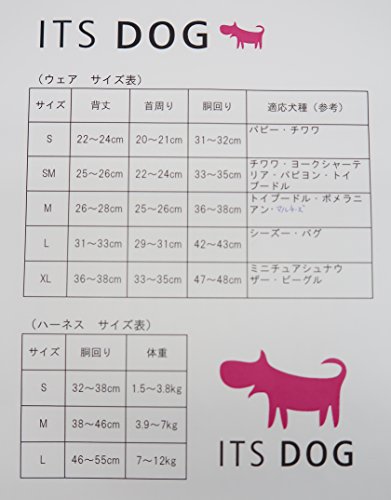 ITS DOG
（ウェア サイズ表）
サイズ 背丈 首周り 胴回り 適応犬種（参考）
S 22～24cm 20～21cm 31～32cm パピー・チワワ
SM 25～26cm 22～24cm 33～35cm チワワ・ヨークシャーテ
リア・パピヨン・トイ
プードル
M 26～28cm 25～26cm 36～38cm トイプードル・ポメラニ
アン・マルチーズ
L 31～33cm 29～31cm 42～43cm シーズー・パグ
XL 36～38cm 33～35cm 47～48cm ミニチュアシュナウ
ザー・ビーグル
（ハーネス サイズ表）
サイズ 胴回り 体重
S 32～38cm 1.5～3.8kg
M 38～46cm 3.9～7kg
L 46～55cm 7～12kg
ITS DOG